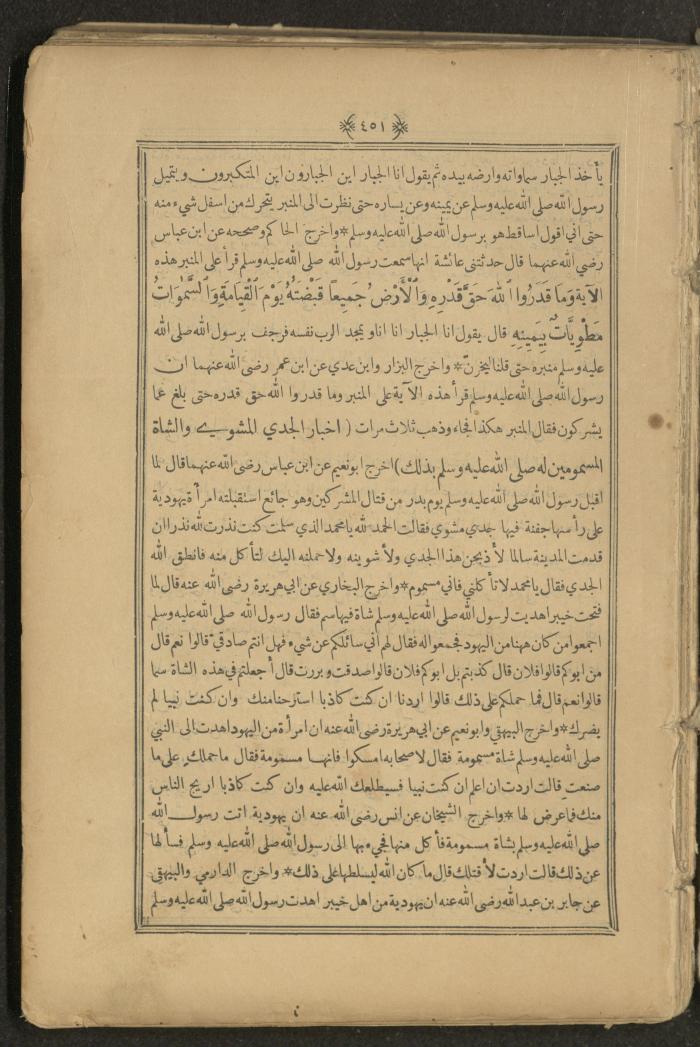 ٤٥١
يأخذ الجبار سماواته وارضه بيده ثم يقول انا الجبار اين الجبارون اين المتكبرون ويتميل
رسول الله صلى الله عليه وسلم عن يمينه وعن يساره حتى نظرت الى المنبر يتحرك من اسفل شيء منه
حتى اني اقول اساقط هو برسول الله صلى الله عليه وسلم * واخرج الحاكم وصححه عن ابن عباس
رضي الله عنهما قال حدثتنى عائشة انها سمعت رسول الله صلى الله عليه وسلم قرأ على المنبر هذه
الآية وَما قَدَرُوا اللهَ حَقَّ قَدْرِهِ وَالْأَرْضُ جَمِيعًا قَبْضَتُهُ يَوْمَ الْقِيَامَةِ وَالسَّمٰوَاتُ
مَطْوِيَّاتٌ بِيَمِينِهِ قال يقول انا الجبار انا انا ويمجد الرب نفسه فرجف برسول الله صلى الله
عليه وسلم منبره حتى قلنا ليخرنّ * واخرج البزار وابن عدي عن ابن عمر رضي الله عنهما ان
رسول الله صلى الله عليه وسلم قرأ هذه الآية على المنبر وما قدروا الله حق قدره حتى بلغ عما
يشركون فقال المنبر هكذا فجاء وذهب ثلاث مرات ( اخبار الجدي المشوي والشاة
المسمومين له صلى الله عليه وسلم بذلك ) اخرج ابو نعيم عن ابن عباس رضي الله عنهما قال لما
اقبل رسول الله صلى الله عليه وسلم يوم بدر من قتال المشركين وهو جائع استقبلته امرأة يهودية
على رأسها جفنة فيها جدي مشوي فقالت الحمد لله يا محمد الذي سلمك كنت نذرت لله نذرا ان
قدمت المدينة سالما لأذبحن هذا الجدي ولأشوينه ولاحملنه اليك لتأكل منه فانطق الله
الجدي فقال يا محمد لا تأكلني فاني مسموم * واخرج البخاري عن ابي هريرة رضي الله عنه قال لما
فتحت خيبر اهديت لرسول الله صلى الله عليه وسلم شاة فيها سم فقال رسول الله صلى الله عليه وسلم
اجمعوا من كان ههنا من اليهود فجمعوا له فقال لهم اني سائلكم عن شيء فهل انتم صادقي قالوا نعم قال
من ابوكم قالوا فلان قال كذبتم بل ابوكم فلان قالوا صدقت وبررت قال أجعلتم في هذه الشاة سما
قالوا نعم قال فما حملكم على ذلك قالوا اردنا ان كنت كاذبا استرحنا منك وان كنت نبيا لم
يضرك * واخرج البيهقي وابو نعيم عن ابي هريرة رضي الله عنه ان امرأة من اليهود اهدت الى النبي
صلى الله عليه وسلم شاة مسمومة فقال لاصحابه امسكوا فانها مسمومة فقال ما حملك على ما
صنعت قالت اردت ان اعلم ان كنت نبيا فسيطلعك الله عليه وان كنت كاذبا اريح الناس
منك فما عرض لها * واخرج الشيخان عن انس رضي الله عنه ان يهودية اتت رسول الله
صلى الله عليه وسلم بشاة مسمومة فأكل منها فجيء بها الى رسول الله صلى الله عليه وسلم فسألها
عن ذلك قالت اردت لأقتلك قال ما كان الله ليسلطها على ذلك * واخرج الدارمي والبيهقي
عن جابر بن عبد الله رضي الله عنه ان يهودية من اهل خيبر اهدت رسول الله صلى الله عليه وسلم